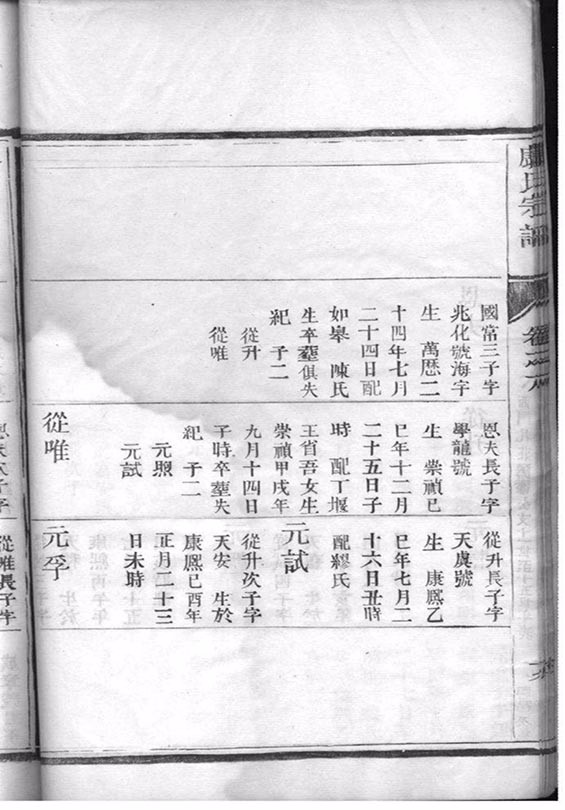 盧氏宗譜
國富三子字
兆化號海字
生 萬曆二
十四年七月
二十四日配
如皋 陳氏
生卒塟俱失
紀 子二
從升
從唯
恩夫長子字
學龍號
生 崇禎已
巳年十二月
二十五日子
時 配丁堰
王省吾女生
崇禎甲戌年
九月十四日
子時卒塟失
紀 子二
元照
元試
從唯
從升長子字
天真號
生 康熙乙
巳年七月二
十六日丑時
配繆氏
元試
從升次子字
天安 生於
康熙已酉年
正月二十三
日未時
元孚
恩夫次子字
從唯長子字